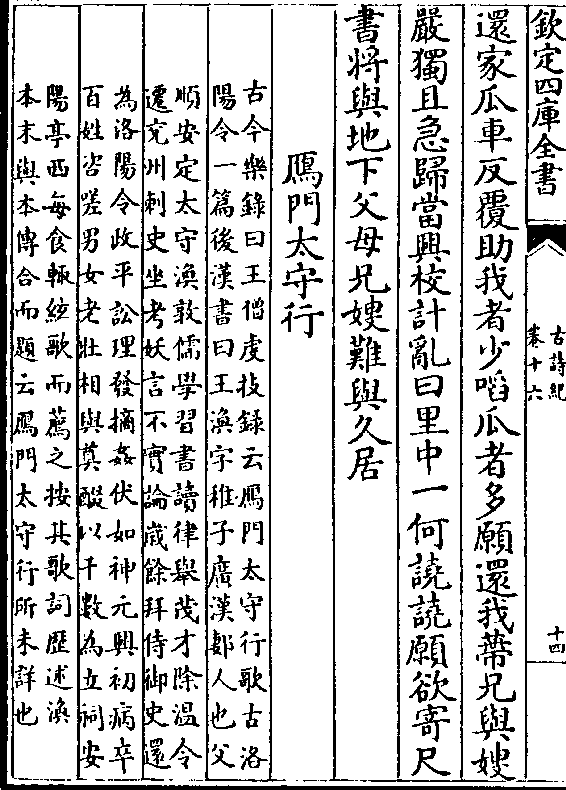 欽定四庫全書
古詩紀
卷十六
十四
還家瓜車反覆助我者少啗瓜者多願還我蔕兄與嫂
嚴獨且急歸當興校計亂曰里中一何譊譊願欲寄尺
書將與地下父母兄嫂難與久居
鴈門太守行
古今樂錄曰王僧虔技錄云鴈門太守行歌古洛
陽令一篇後漢書曰王渙字稚子廣漢郪人也父
順安定太守渙敦儒學習書讀律舉茂才除溫令
遷兖州刺史坐考妖言不實論嵗餘拜侍御史還
為洛陽令政平訟理發摘姦伏如神元興初病卒
百姓咨嗟男女老壯相與奠醊以千數為立祠安
陽亭西毎食輒絃歌而薦之按其歌詞歴述渙
本末與本傳合而題云鴈門太守行所未詳也